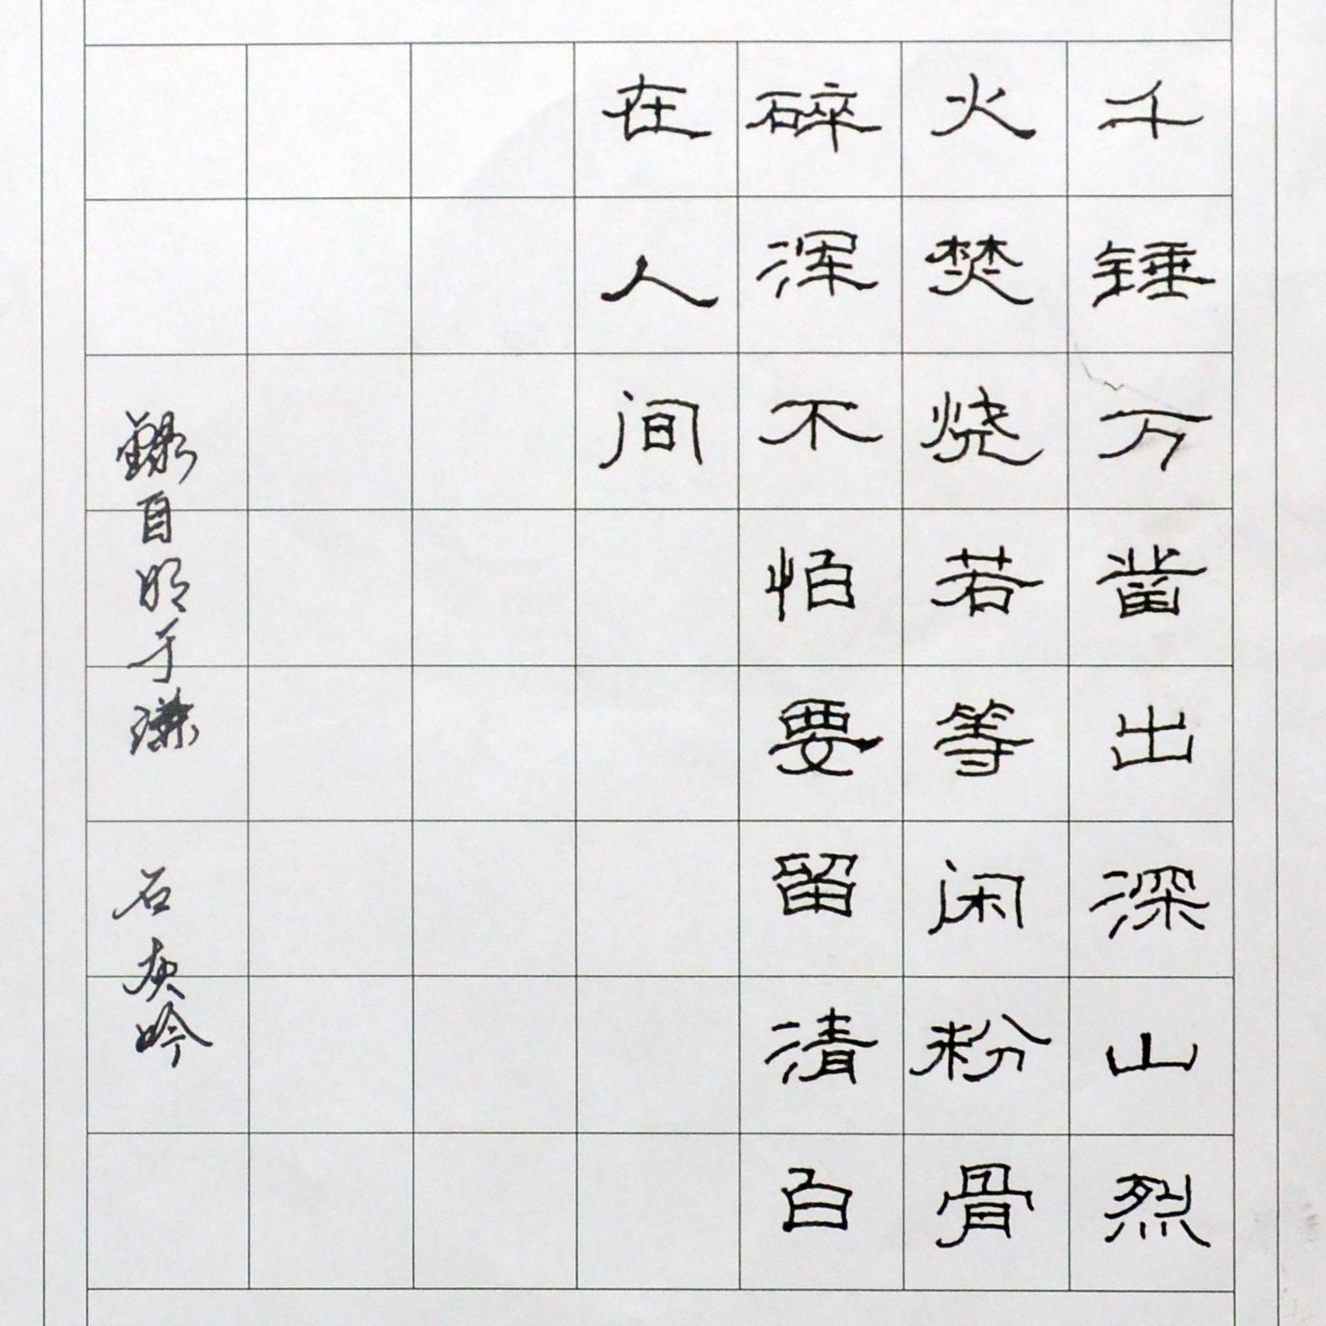 千锤万凿出深山烈
火焚烧若等闲粉骨
碎浑不怕要留清白
在人间
錄自明于谦 石灰吟